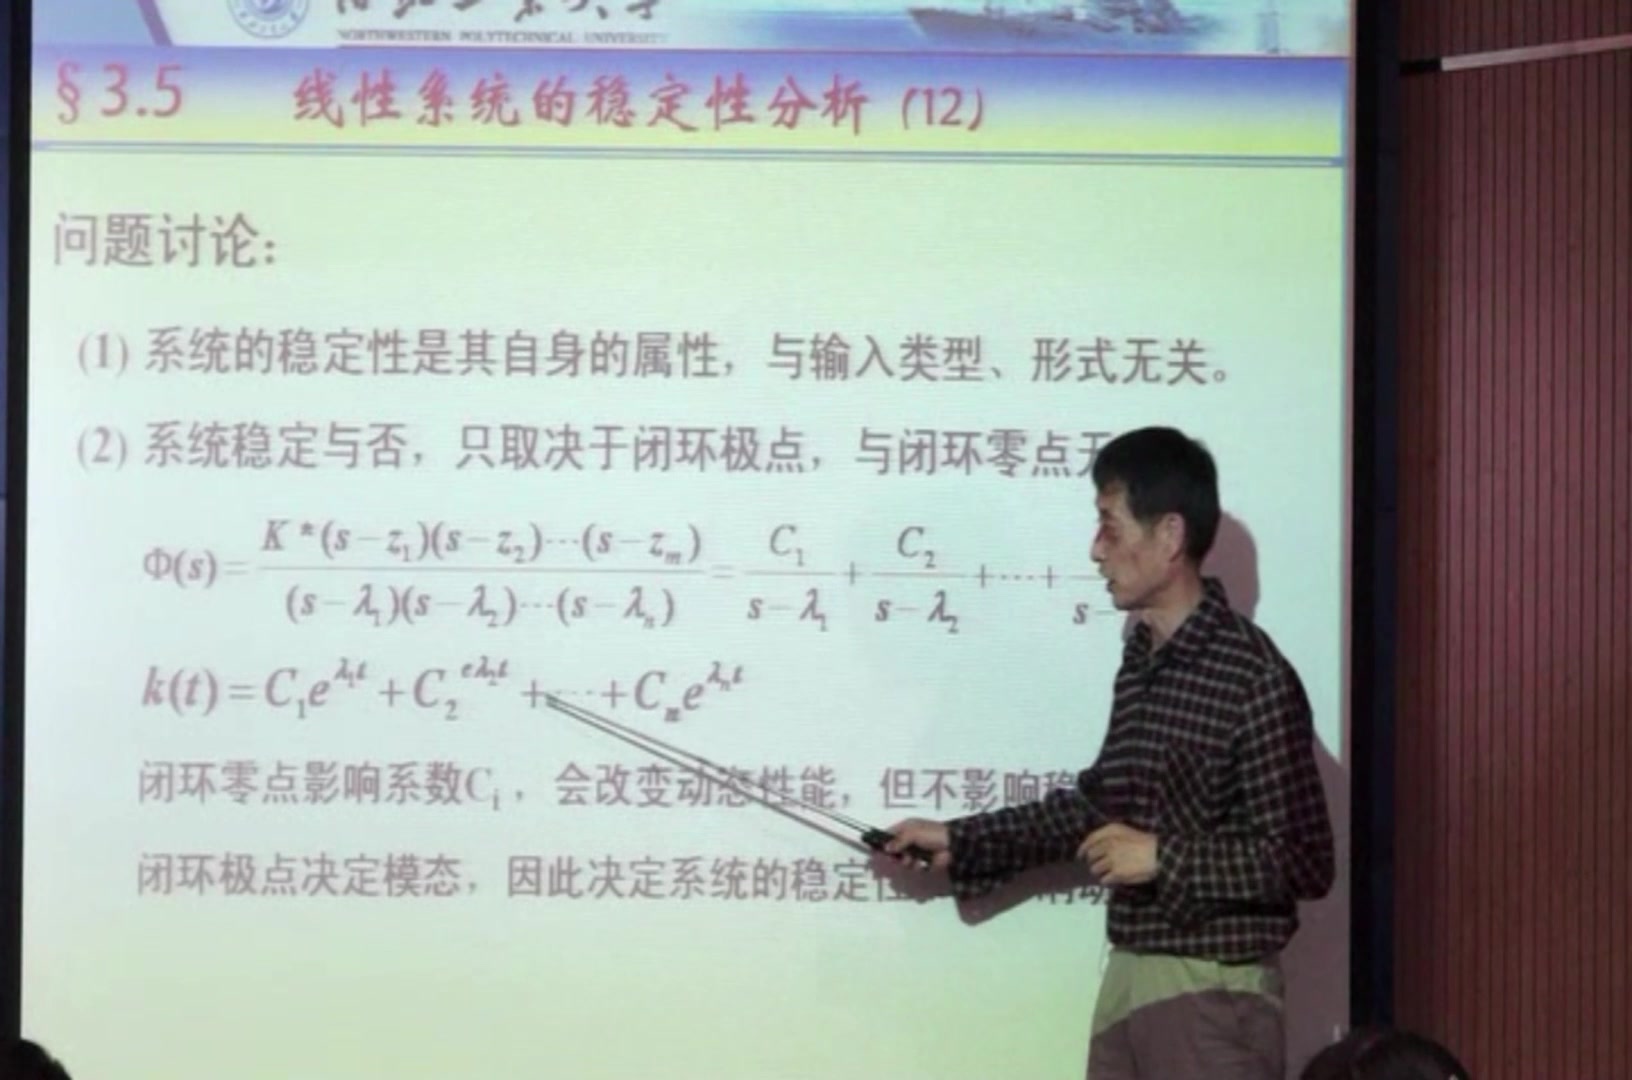 NORTHWESTERN POLYTECHNICAL UNIVERSITY
§3.5 线性系统的稳定性分析 (12)
问题讨论:
(1) 系统的稳定性是其自身的属性，与输入类型、形式无关。
(2) 系统稳定与否，只取决于闭环极点，与闭环零点无
Φ(s)=K*(s-z₁)(s-z₂)···(s-zₘ)/(s-λ₁)(s-λ₂)···(s-λₙ)=C₁/s-λ₁+C₂/s-λ₂+···+ s-
k(t)=C₁e^λ₁t+C₂^eλ₂t+···+Cₘe^λₙt
闭环零点影响系数Cᵢ，会改变动态性能，但不影响稳
闭环极点决定模态，因此决定系统的稳定性 响动